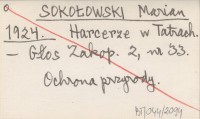 SOKOŁOWSKI Marian
1924. Harcerze w Tatrach.
– Głos Zakop. 2, nr 33.
Ochrona przyrody.